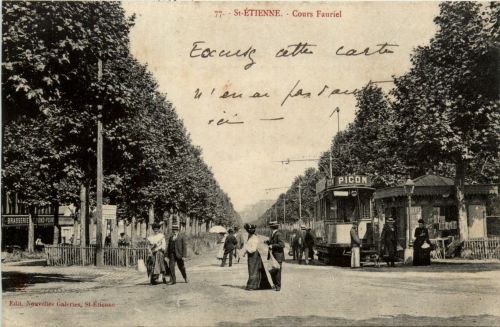 77. - St-ÉTIENNE. - Cours Fauriel
Excusez cette carte
n'en ai pas d'autre
ici —
PICON
BRASSERIE DU ROND-POINT
Edit. Nouvelles Galeries, St-Etienne